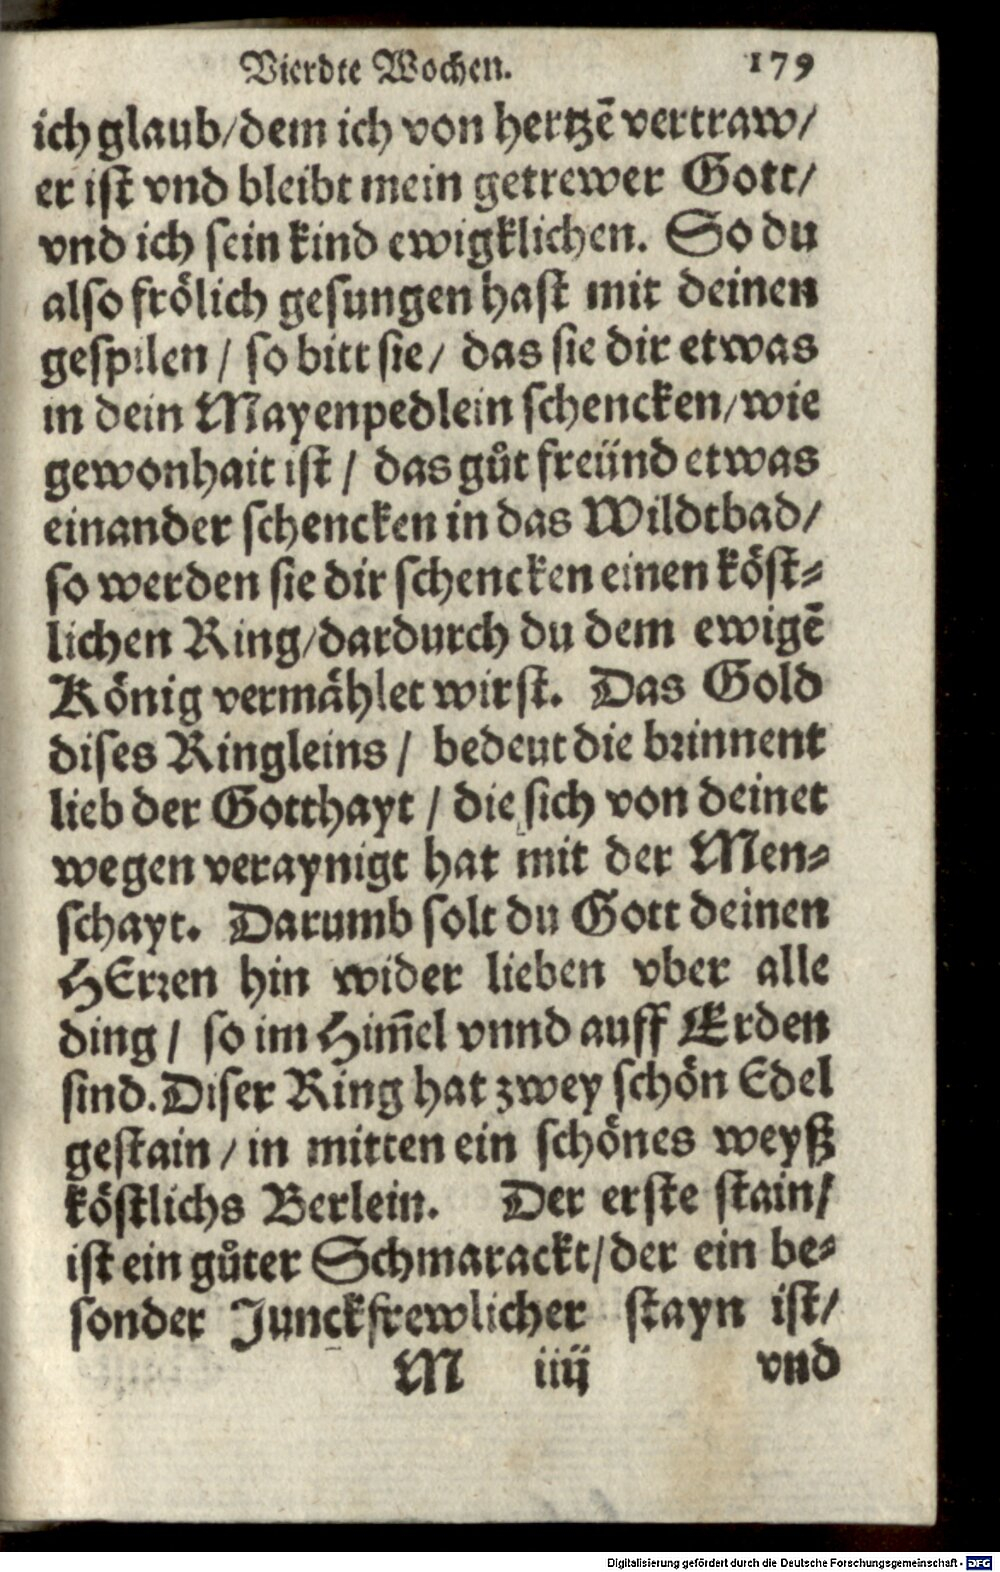 Vierdte Wochen. 179
ich glaub/dem ich von hertzē vertraw/
er ist vnd bleibt mein getrewer Gott/
vnd ich sein kind ewigklichen. So du
also frölich gesungen hast mit deinen
gespilen / so bitt sie / das sie dir etwas
in dein Mayenpedlein schencken/wie
gewonhait ist / das gůt freünd etwas
einander schencken in das Wildtbad/
so werden sie dir schencken einen köst-
lichen Ring/dardurch du dem ewigē
König vermählet wirst. Das Gold
dises Ringleins / bedeut die brinnent
lieb der Gotthayt / die sich von deinet
wegen veraynigt hat mit der Men-
schayt. Darumb solt du Gott deinen
HErren hin wider lieben vber alle
ding / so im Him̄el vnnd auff Erden
sind. Diser Ring hat zwey schön Edel
gestain / in mitten ein schönes weyß
köstlichs Berlein. Der erste stain/
ist ein gůter Schmarackt/der ein be-
sonder Junckfrewlicher stayn ist/
M iiij vnd
Digitalisierung gefördert durch die Deutsche Forschungsgemeinschaft - DFG